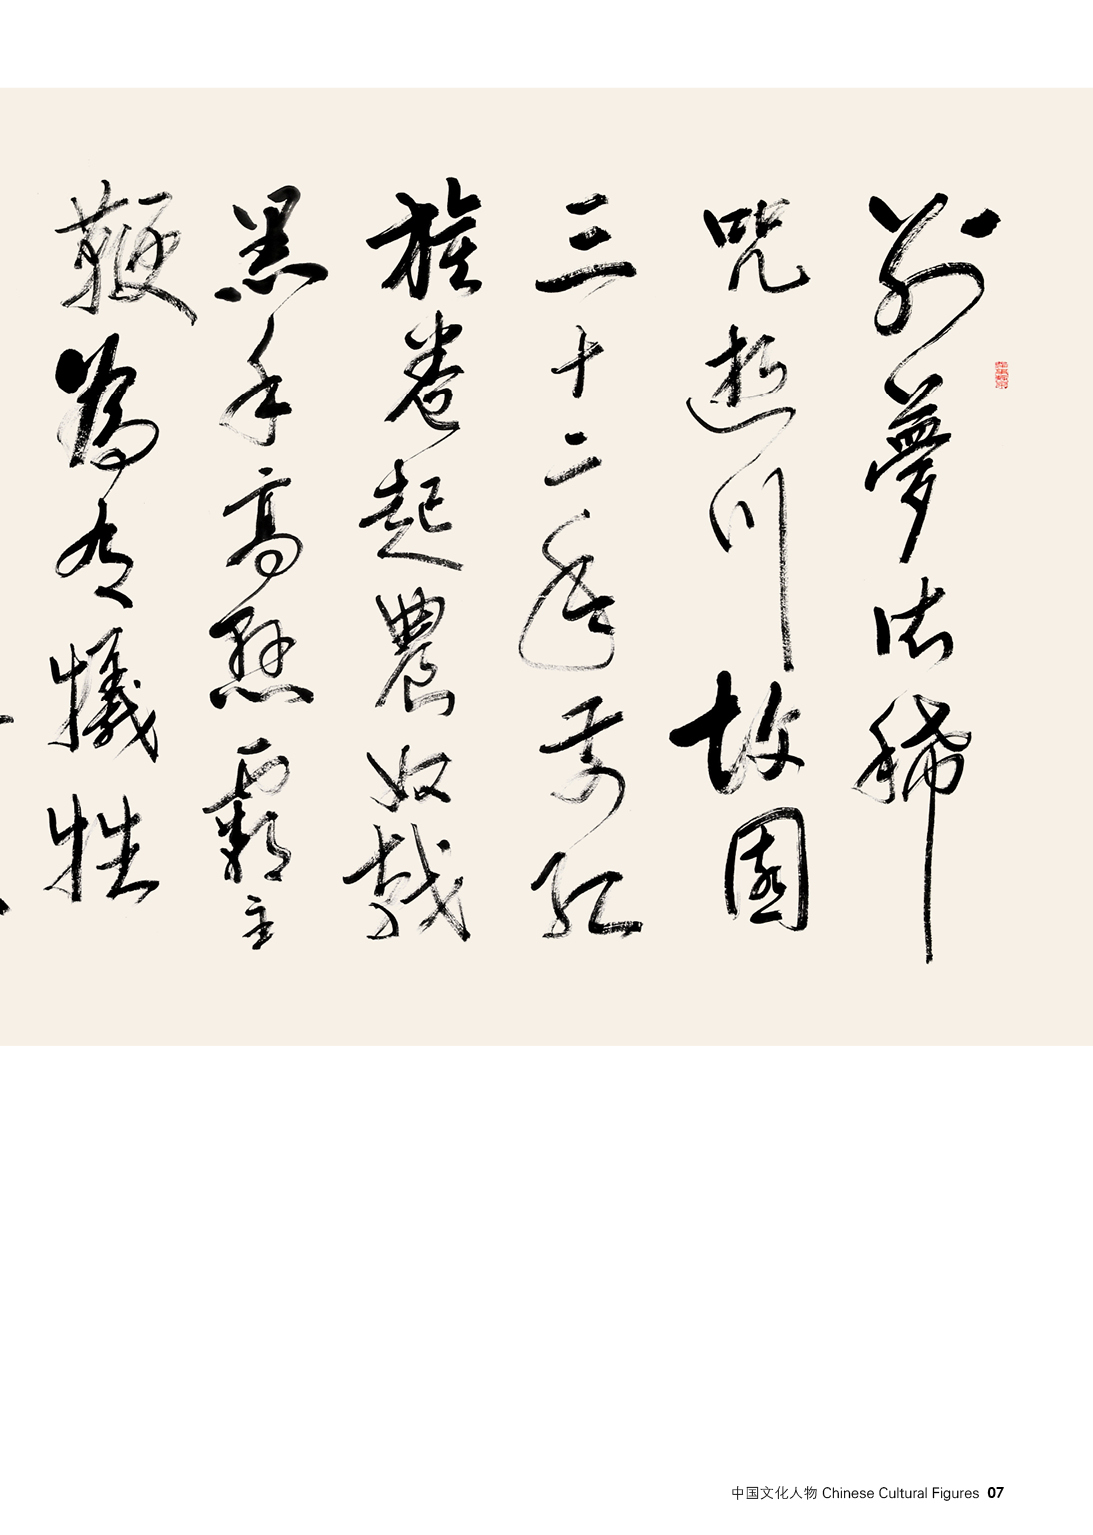 別夢依稀
咒逝川故園
三十二年前紅
旗卷起農奴戟
黑手高懸霸主
鞭為有犧牲
中国文化人物 Chinese Cultural Figures 07